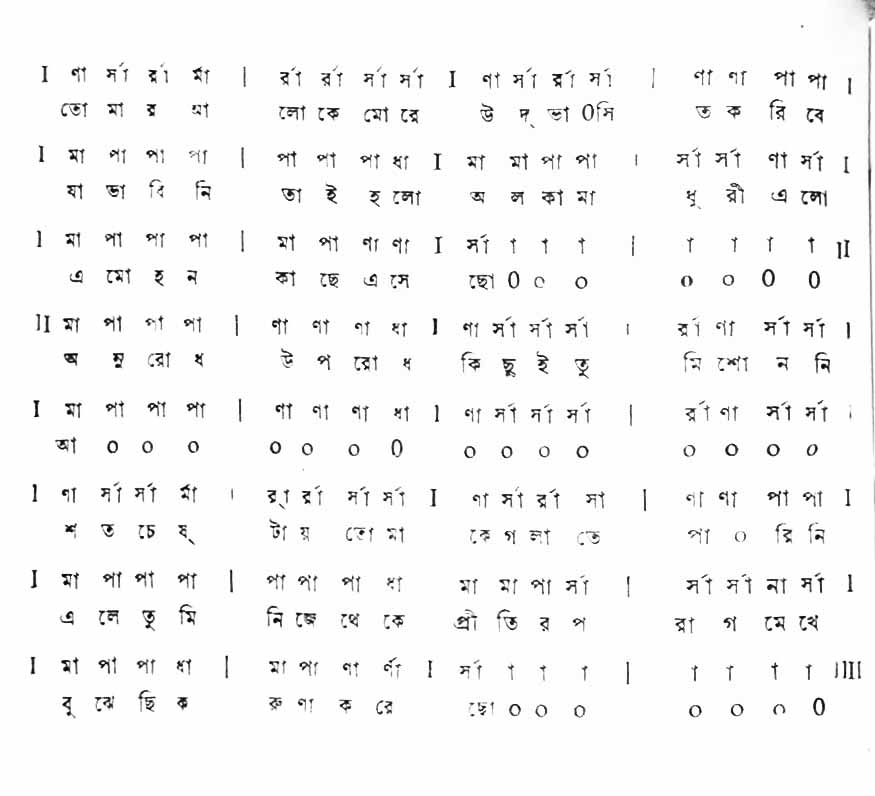 I ণা র্সা র্রা র্মা | র্রা র্রা র্সা র্সা I ণা র্সা র্রা র্সা | ণা ণা পা পা I
তো মা র আ লো কে মো রে উ দ্ ভা 0সি ত ক রি বে
I মা পা পা পা | পা পা পা ধা I মা মা পা পা | র্সা র্সা ণা র্সা I
যা ভা বি নি তা ই হ লো অ ল কা মা ধু রী এ লো
I মা পা পা পা | মা পা ণা ণা I র্সা † † † | † † † † II
এ মো হ ন কা ছে এ সে ছো 0 ০ ০ ০ ০ 0 0
II মা পা পা পা | ণা ণা ণা ধা I ণা র্সা র্সা র্সা | র্রা ণা র্সা র্সা I
অ নু রো ধ উ প রো ধ কি ছু ই তু মি শো ন নি
I মা পা পা পা | ণা ণা ণা ধা I ণা র্সা র্সা র্সা | র্রা ণা র্সা র্সা I
আ ০ ০ ০ ০ ০ ০ 0 ০ ০ ০ ০ ০ ০ ০ ০
I ণা র্সা র্সা র্মা | র্রা র্রা র্সা র্সা I ণা র্সা র্রা সা | ণা ণা পা পা I
শ ত চে ষ্ টা য় তো মা কে গ লা তে পা ০ রি নি
I মা পা পা পা | পা পা পা ধা মা মা পা র্সা | র্সা র্সা না র্সা I
এ লে তু মি নি জে থে কে প্রী তি র প রা গ মে খে
I মা পা পা ধা | মা পা ণা র্ণা I র্সা † † † | † † † † IIII
বু ঝে ছি ক রু ণা ক রে ছো ০ ০ ০ ০ ০ ০ 0